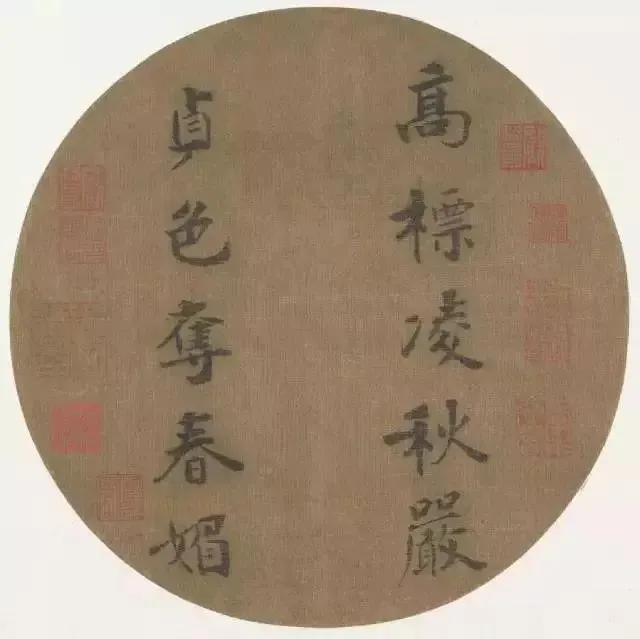 髙標凌秋嚴
貞色奪春媚